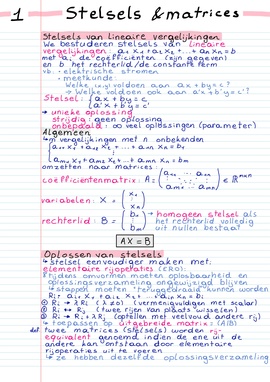 1 Stelsels & matrices
Stelsels van lineaire vergelijkingen
We bestuderen stelsels van lineaire
vergelijkingen: a₁ x₁ + a₂ x₂ + ... + aₙ xₙ = b
met "aᵢ" de coëfficiënten (zijn gegeven)
en b het rechterlid/de constante term
vb. - elektrische stromen
- meetkunde:
Welke (x,y) voldoen aan ax + by = c?
→ Welke voldoen ook aan a'x + b'y = c'?
Stelsel: { ax + by = c
a'x + b'y = c'
→ unieke oplossing
strijdig: geen oplossing
onbepaald: ∞ veel oplossingen (parameter)
Algemeen
↳ m vergelijkingen met n onbekenden
{ a₁₁ x₁ + a₁₂ x₂ + ... + a₁ₙ xₙ = b₁
⋮
aₘ₁ x₁ + aₘ₂ x₂ + ... + aₘₙ xₙ = bₘ
omzetten naar matrices:
coëfficiëntenmatrix: A = (a₁₁ ... a₁ₙ
⋮ ⋱ ⋮
aₘ₁ ... aₘₙ) ∈ ℝᵐˣⁿ
variabelen: X = (x₁
⋮
xₙ)
rechterlid: B = (b₁
⋮
bₘ)
→ homogeen stelsel als
het rechterlid volledig
uit nullen bestaat?
AX = B
Oplossen van stelsels
↳ Stelsel eenvoudiger maken met:
elementaire rijoperaties (ERO):
Tijdens omvormen moeten oplosbaarheid en
oplossingsverzameling ongewijzigd blijven
↳ stappen moeten teruggedraaid kunnen worden
Rᵢ: aᵢ₁ x₁ + aᵢ₂ x₂ + ... aᵢₙ xₙ = bᵢ
① Rᵢ → λRᵢ (λ≠0) (vermenigvuldigen met scalar)
② Rᵢ ↔ Rⱼ (twee rijen van plaats wisselen)
③ Rᵢ → Rᵢ + λRⱼ (optellen met veelvoud andere rij)
↳ toepassen op uitgebreide matrix: (A|B)
def twee matrices (stelsels) worden rij-
equivalent genoemd indien de ene uit de
andere kan ontstaan door elementaire
rijoperaties uit te voeren
↳ ze hebben dezelfde oplossingsverzameling